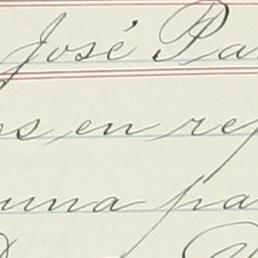 José Pa
s en re
una pa